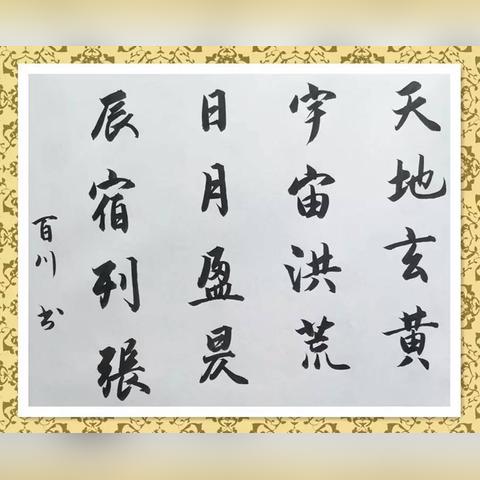 天地玄黄
宇宙洪荒
日月盈昃
辰宿列張
百川书